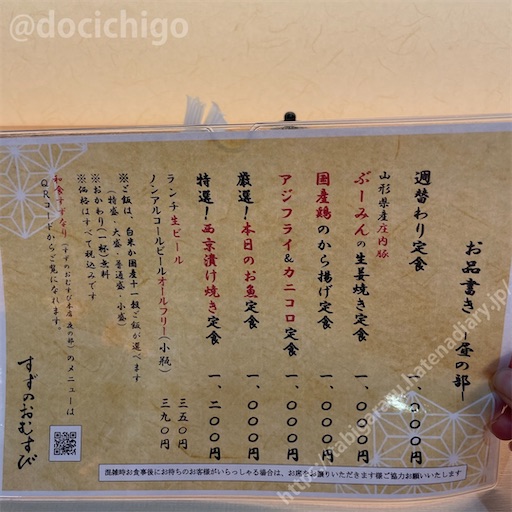 @docichigo
お品書き 昼の部
週替わり定食 一、〇〇〇円
山形県産庄内豚
ぶーみんの生姜焼き定食 一、〇〇〇円
国産鶏のから揚げ定食 一、〇〇〇円
アジフライ&カニコロ定食 一、〇〇〇円
厳選!本日のお魚定食 一、〇〇〇円
特選!西京漬け焼き定食 一、二〇〇円
ランチ生ビール 三五〇円
ノンアルコールビールオールフリー(小瓶) 三九〇円
※ご飯は、白米か国産十一穀ご飯が選べます
(特盛・大盛・普通盛・小盛)
※おかわり(一杯)無料
※価格はすべて税込みです
和食すずなり(すずのおむすび本店 夜の部)のメニューは
QRコードからご覧になれます。
すずのおむすび
混雑時お食事後にお待ちのお客様がいらっしゃる場合は、お席をお譲りいただきます様ご協力お願いいたします